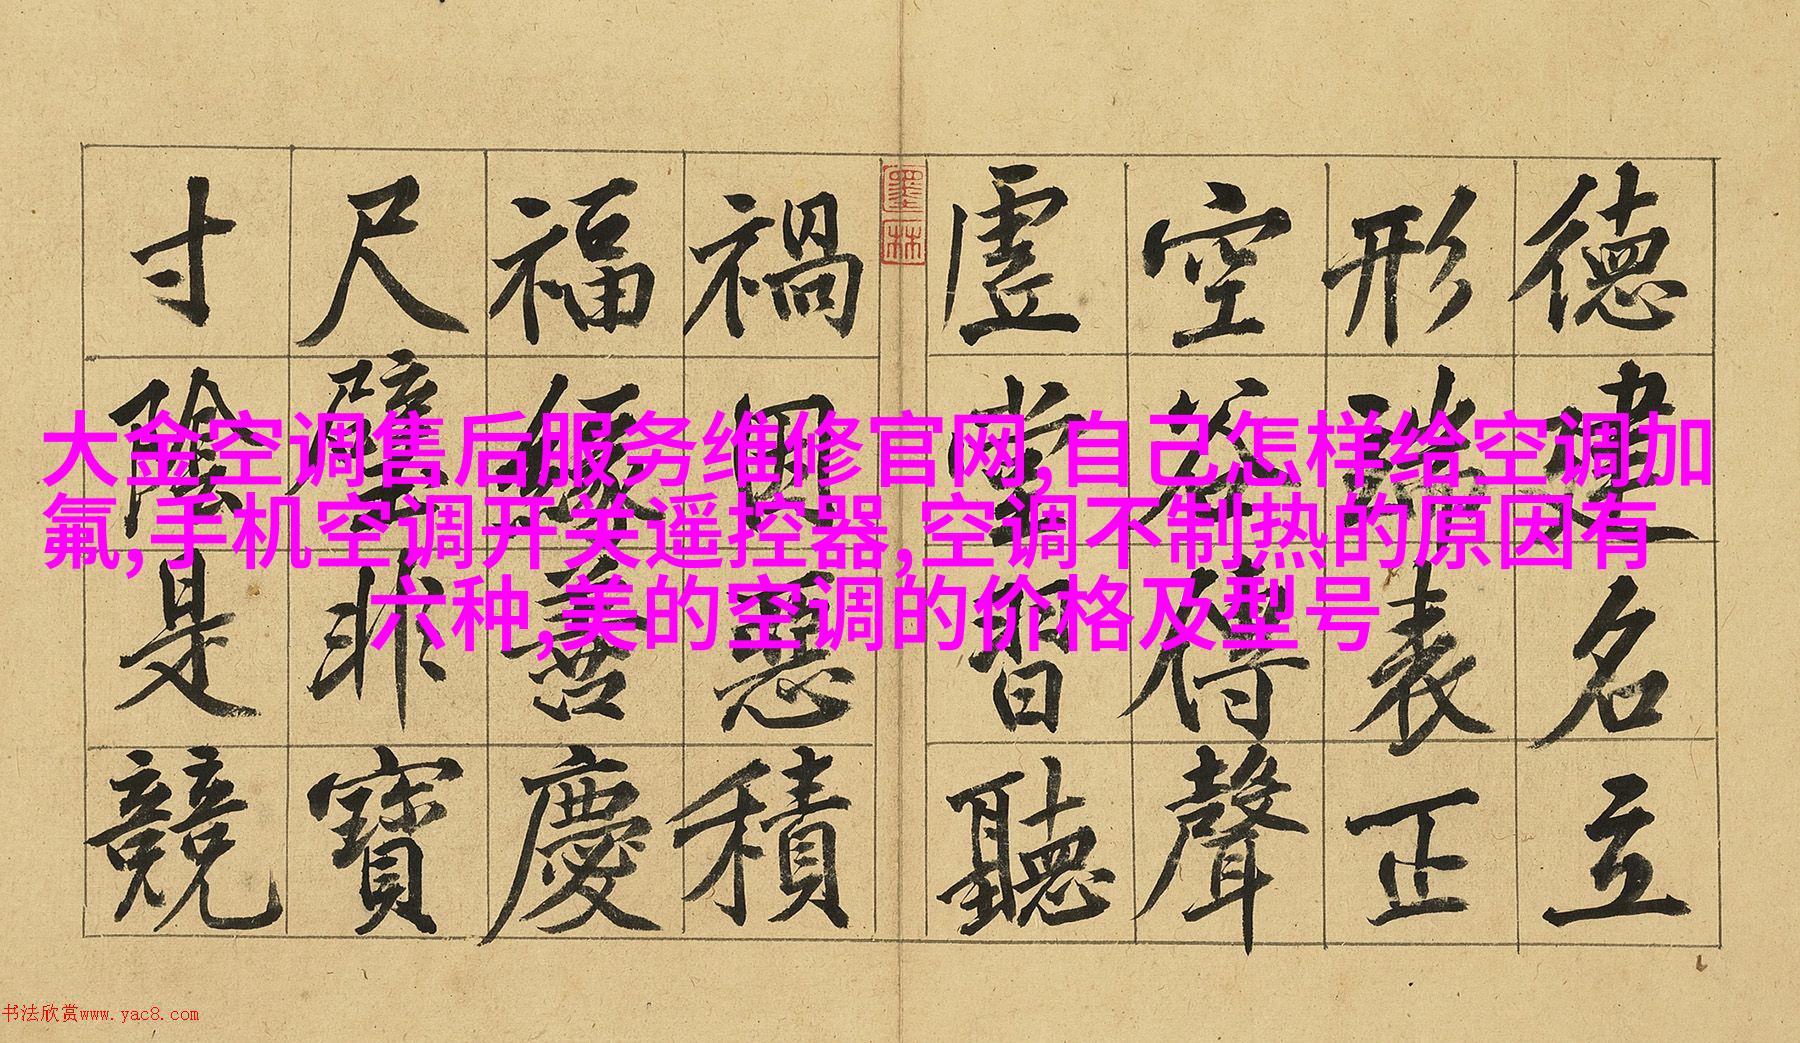 大金空调售后服务维修官网,自己怎样给空调加
氟,手机空调开关遥控器,空调不制热的原因有
六种,美的空调的价格及型号
德建名立
形端表正
空谷傳聲
虛堂習聽
墨林
禍因惡積
福緣善慶
尺璧非寶
寸陰是競
书法欣赏www.yac8.com